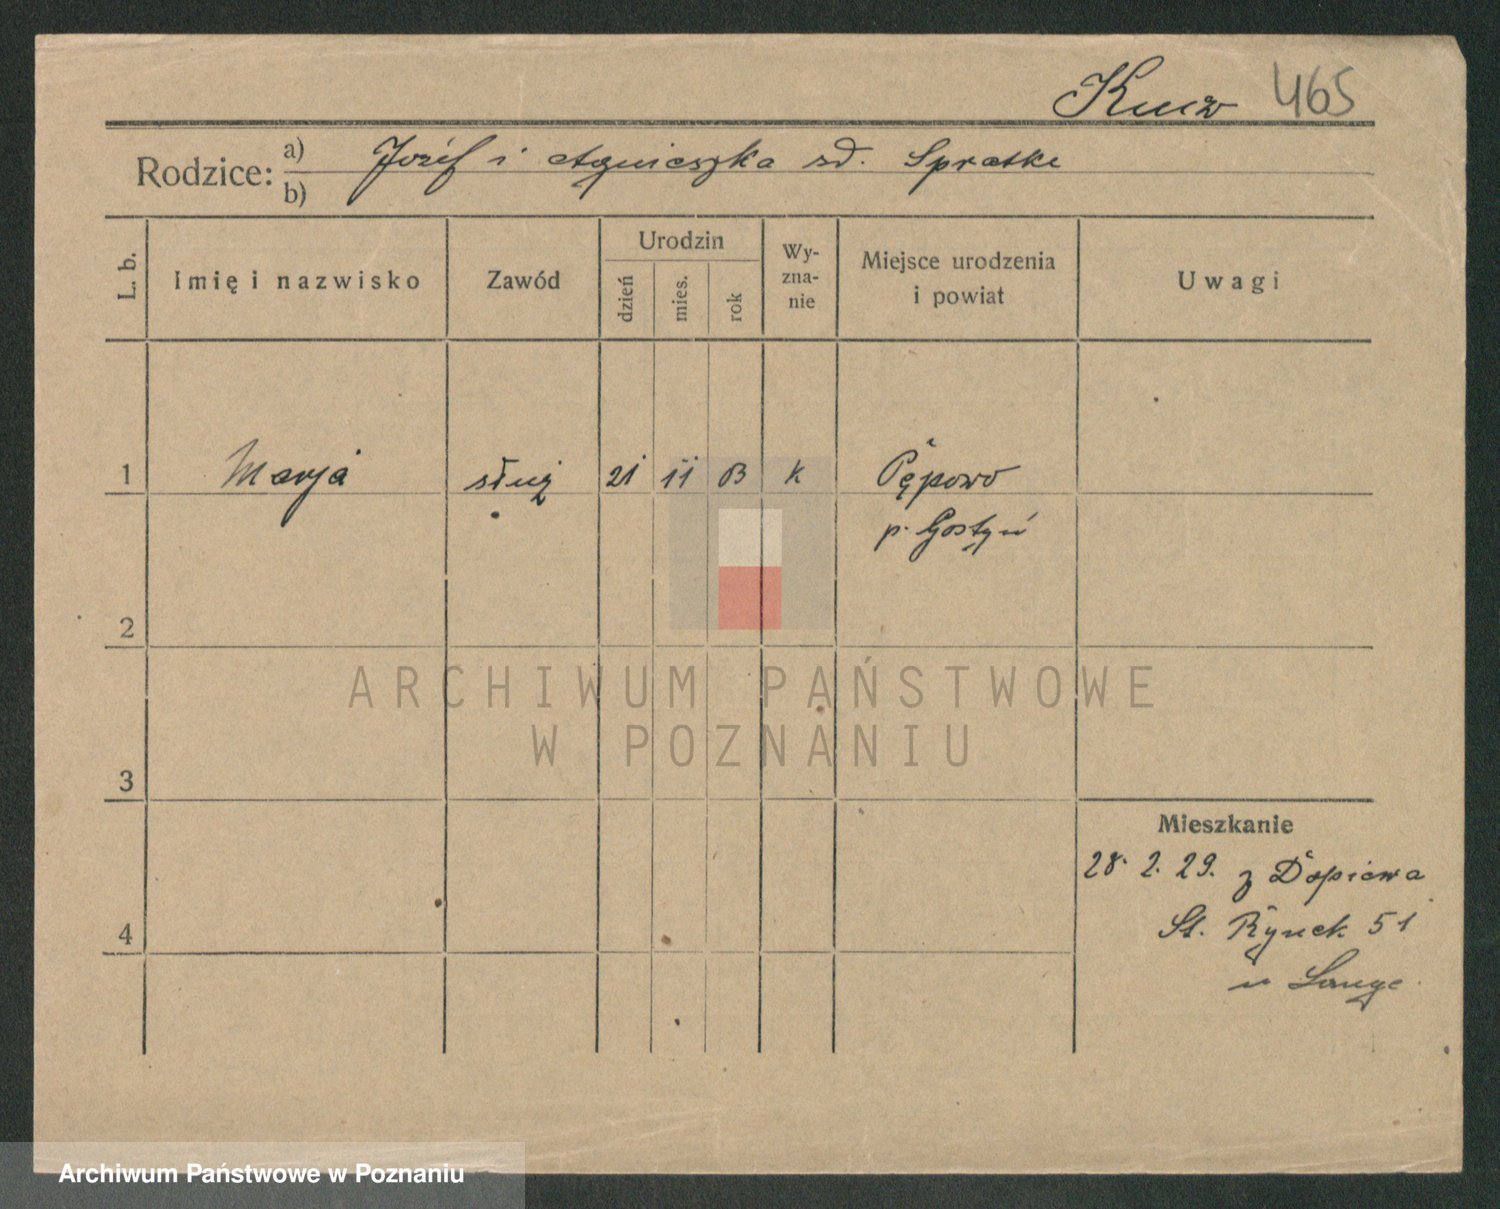 465
Rodzice: a) Józef i Agnieszka zd. Spratke
b)
L. b.
Imię i nazwisko
Zawód
Urodzin
dzień
mies.
rok
Wy-
zna-
nie
Miejsce urodzenia
i powiat
Uwagi
1 Marja służ 21 11 13 K Pępowo
p. Gostyń
2
3
4
Mieszkanie
28. 2. 29. z Dopiewa
St. Rynek 51
u Lange
ARCHIWUM PAŃSTWOWE
W POZNANIU
Archiwum Państwowe w Poznaniu